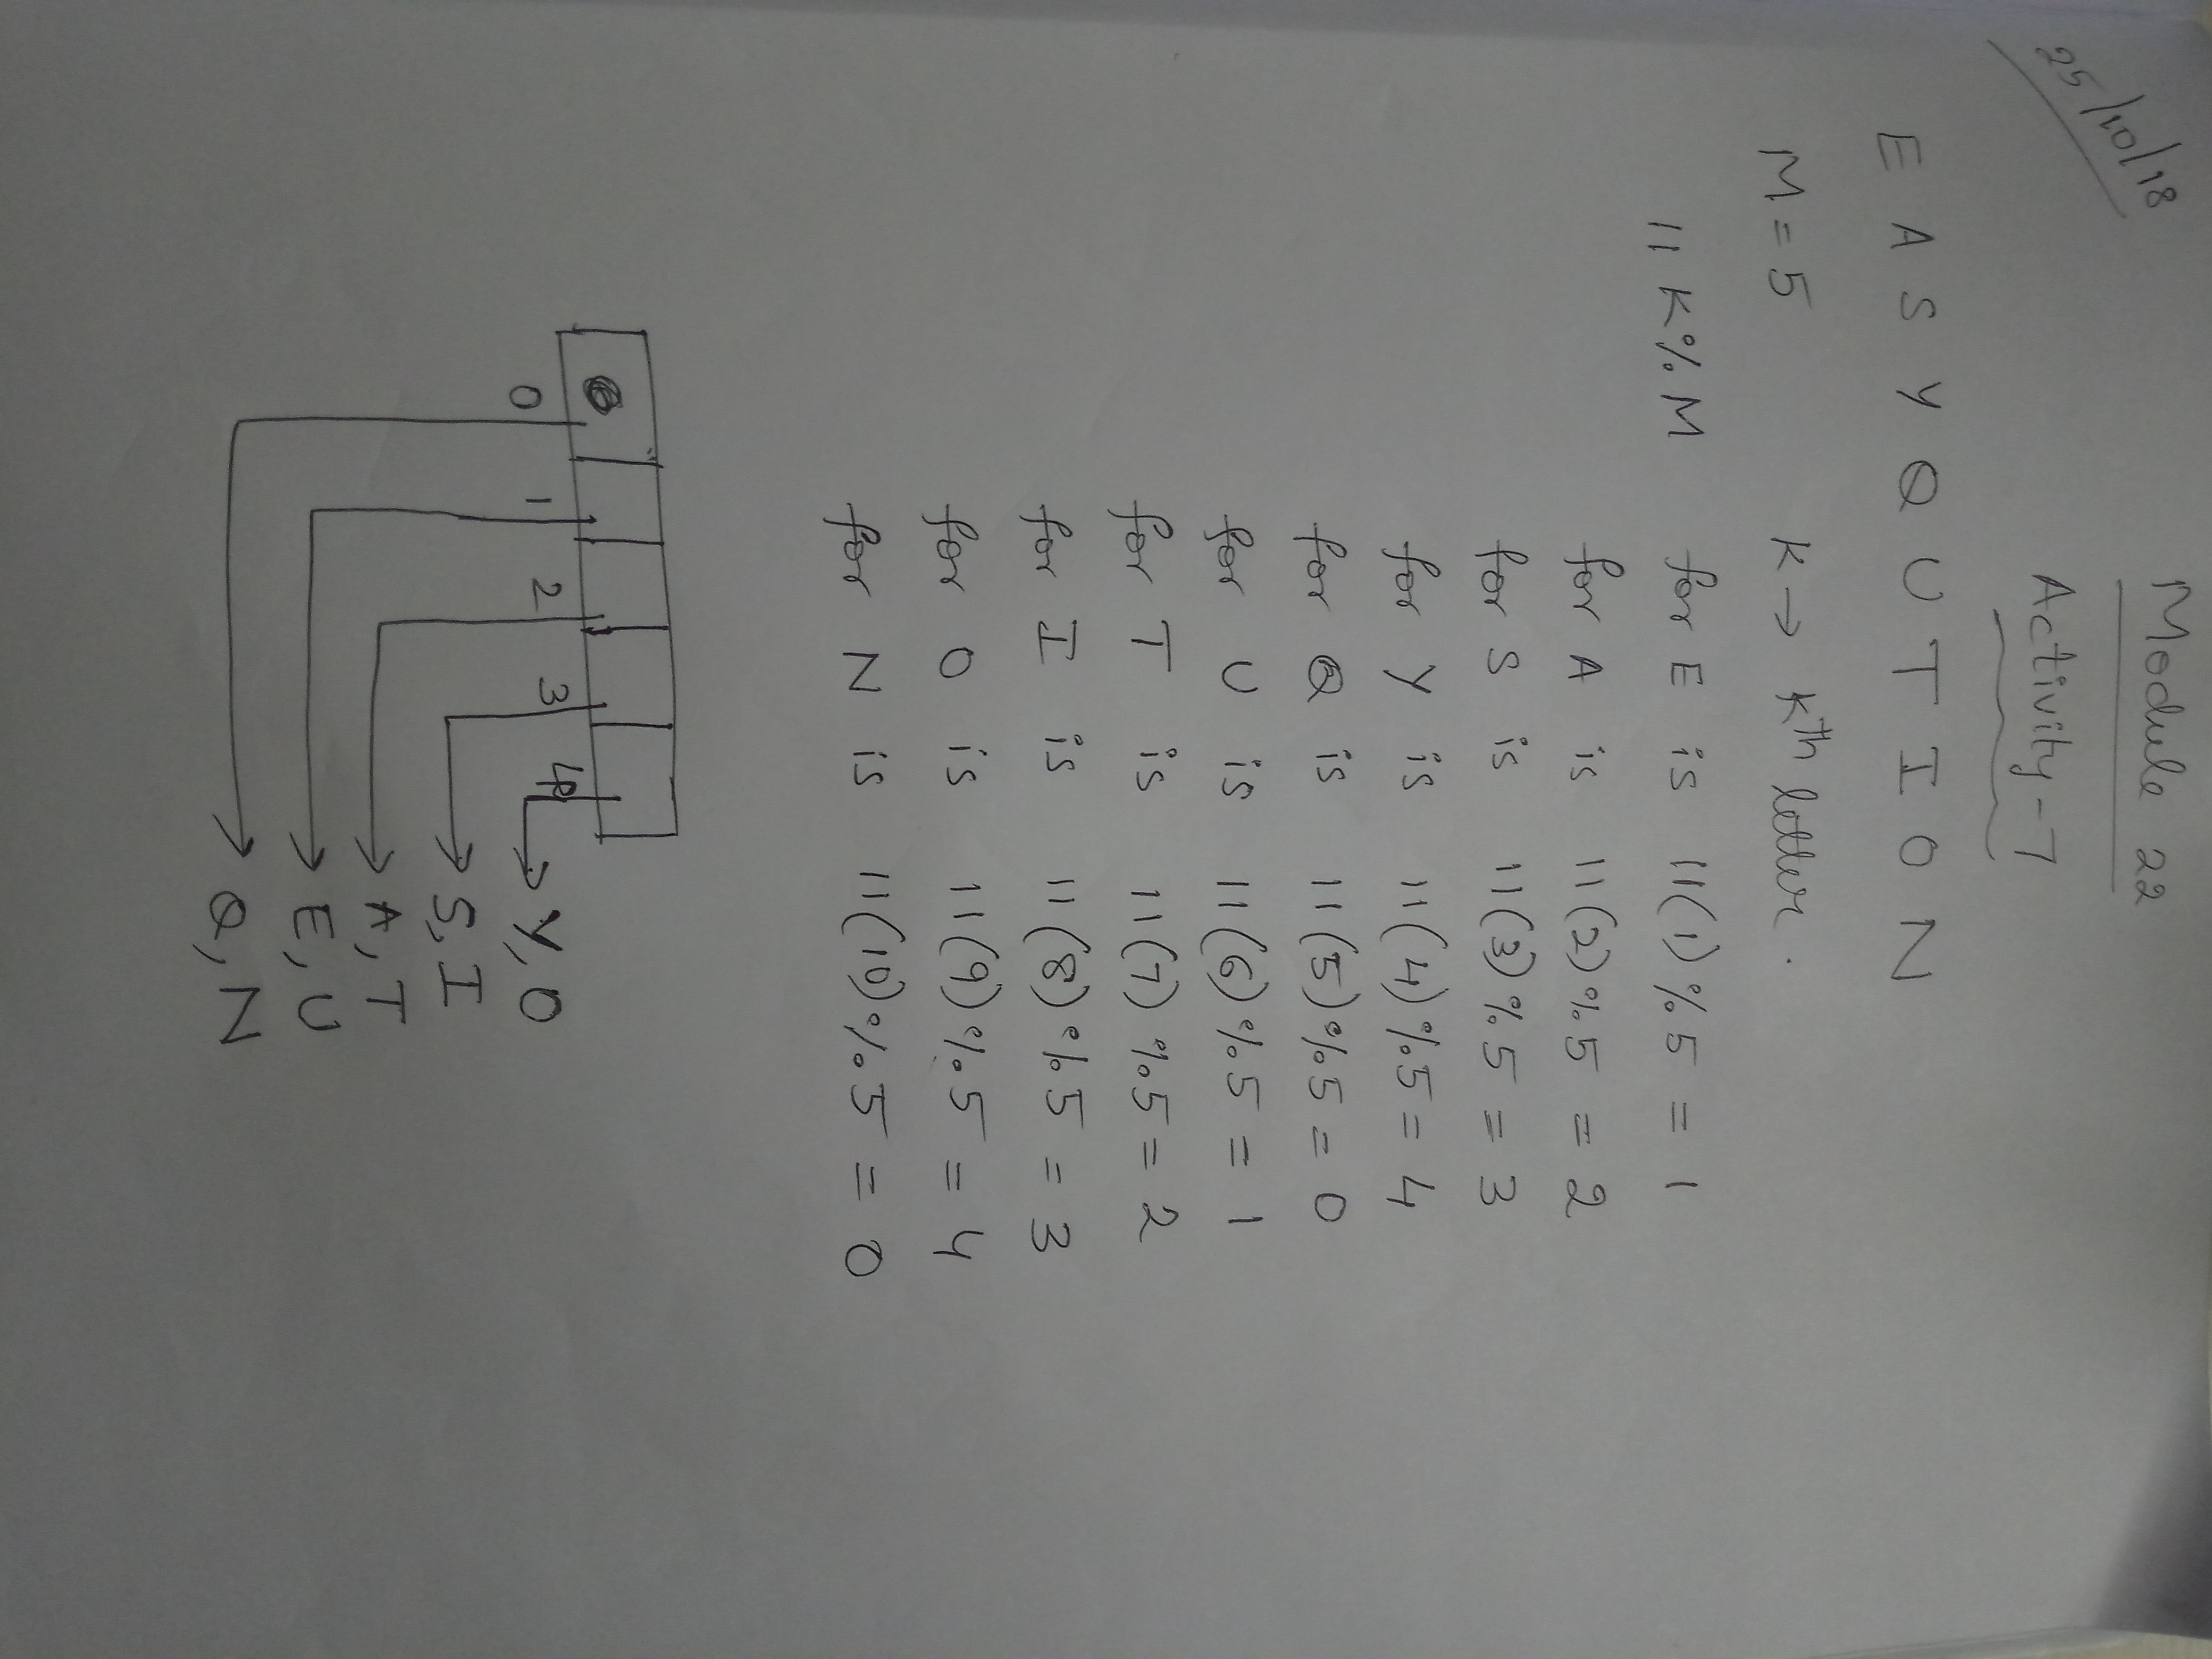 25/10/18
Module 22
Activity-7
E A S Y Q U T I O N
M = 5 K → Kth letter.
11 K % M for E is 11(1) % 5 = 1
for A is 11(2) % 5 = 2
for S is 11(3) % 5 = 3
for Y is 11(4) % 5 = 4
for Q is 11(5) % 5 = 0
for U is 11(6) % 5 = 1
for T is 11(7) % 5 = 2
for I is 11(8) % 5 = 3
for O is 11(9) % 5 = 4
for N is 11(10) % 5 = 0
0 1 2 3 4
Y, O
S, I
A, T
E, U
Q, N